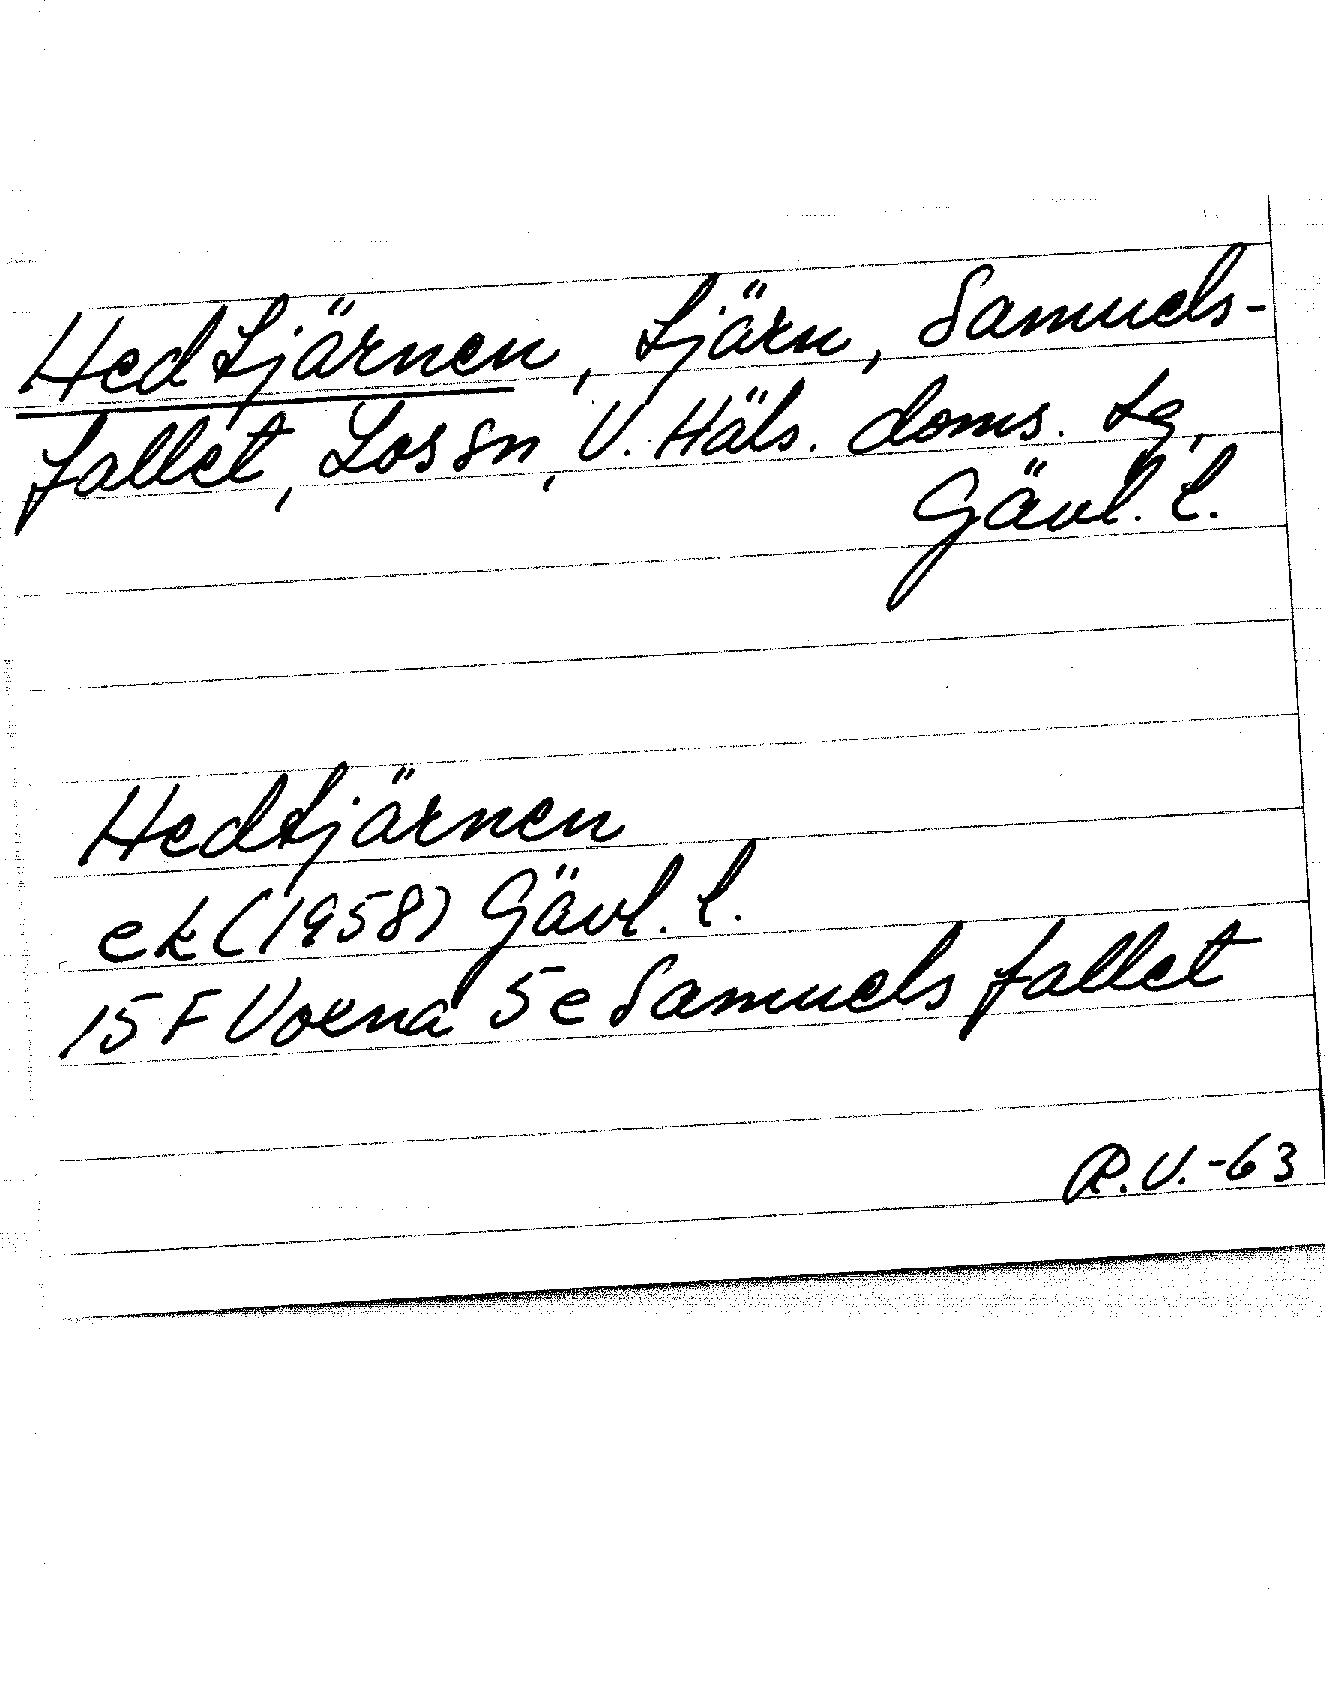 Hedtjärnen, tjärn, Samuels-
fallet, Los sn, V. Häls. doms. tg,
Gävl. l.
Hedtjärnen
ek (1958) Gävl. l.
15 F Voxna 5 e Samuelsfallet
R.V.-63